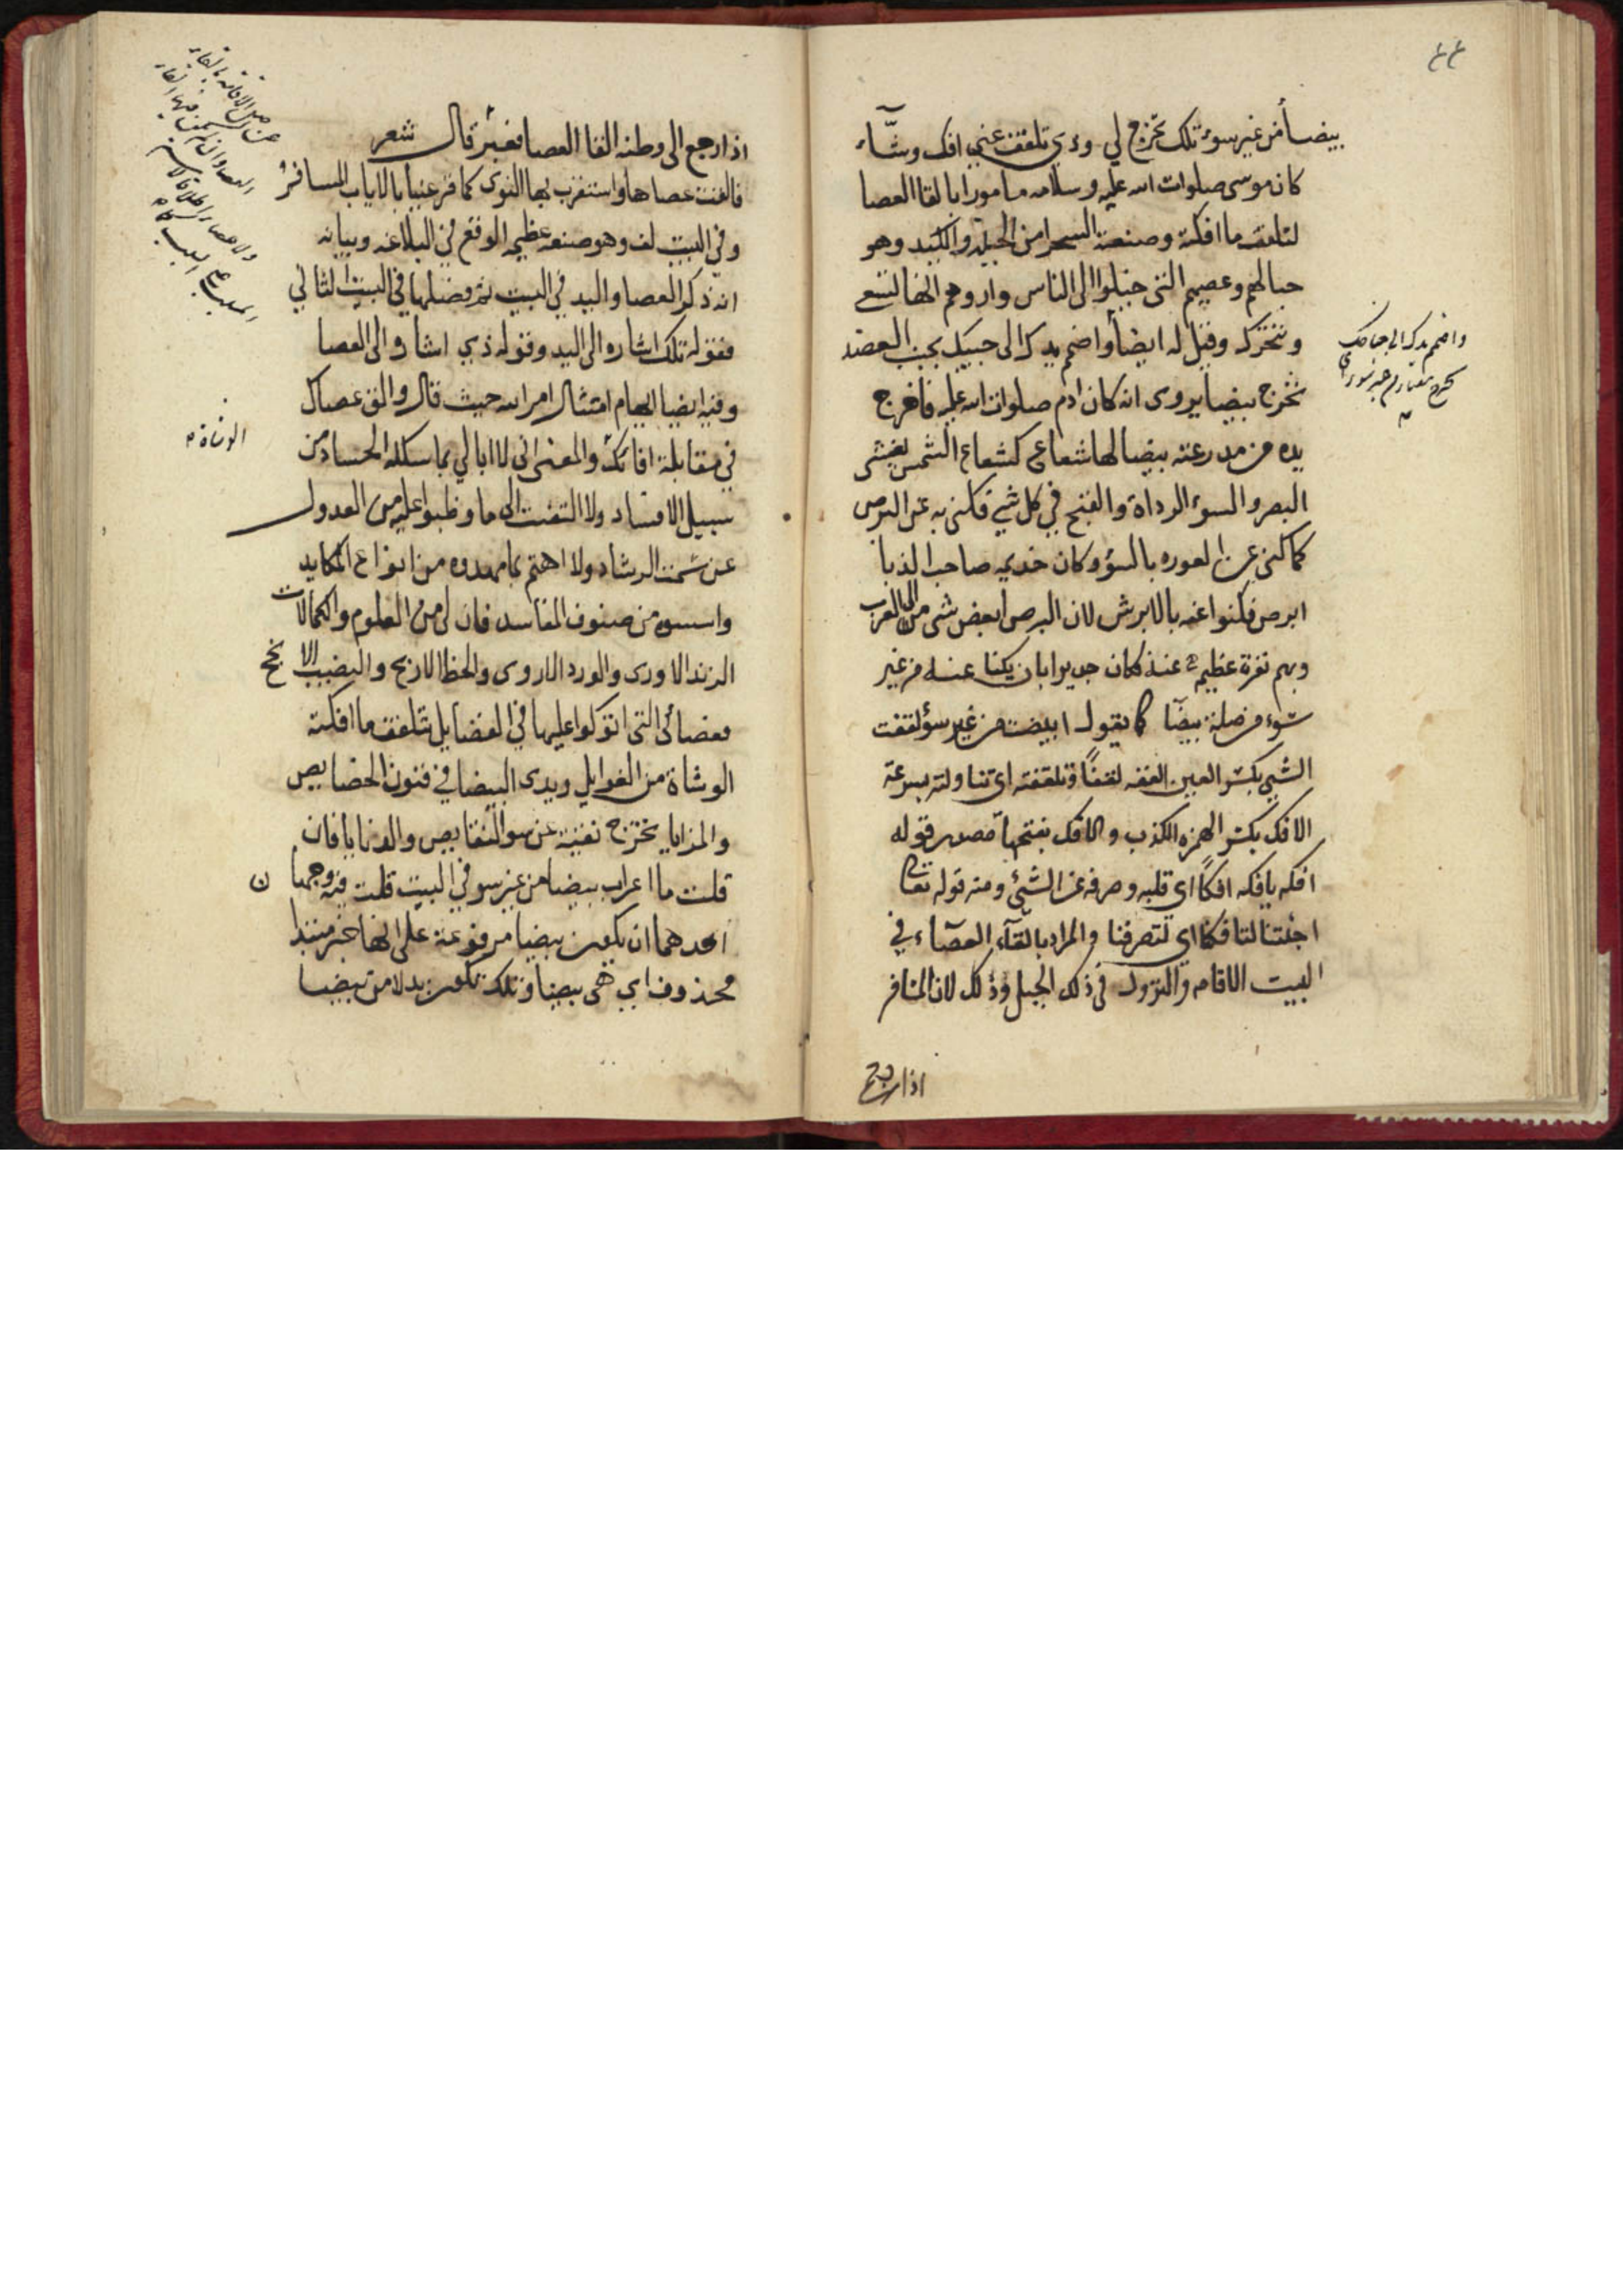 ٤٤
بيضاً من غير سوء تلك تخرج لي وذي تلقف عني افك وشّاء
كان موسى صلوات الله عليه وسلامه مامورا بالقا العصا
لتلقف ما افكته وصنعته السحرا من الحيلة والكيد وهو
حبالهم وعصيهم التى خيلوا الى الناس واروهم انها تسعى
وتتحرك وقيل له ايضاً واضمم يدك الى جيبك بجنب العضد
تخرج بيضا يروى انه كان ادم صلوات الله عليه فاخرج
يده من مدرعته بيضا لها شعاع كشعاع الشمس يغشى
البصر والسوء الرداة والقبح في كل شي فكنى به عن البرص
كما كنى عن العوره بالسؤ وكان خديمه صاحب الذبا
ابرص فكنوا عنه بالابرش لان البرص ابغض شى الى العرب
وبهم نفرة عظيمة عنه فكان جديرا بان يكنا عنه من غير
سوء من صلة بيضا كما يقول ابيضت من غير سؤ لقفت
الشي بكسر العين القفه لقفاً وتلقفته اى تناولته بسرعة
الافك بكسر الهمزه الكذب والافك بفتحها مصدر قوله
افكه يافكه افكاً اي قلبه وصرفه عن الشئ ومنه قوله تعالى
اجئتنا لتافكنا اي لتصرفنا والمراد بالقآء العصآء في
البيت الاقامه والنزول فى ذلك الجبل وذلك لان المسافر
اذا رجع
واضمم يدك الى جناحك
تخرج بيضا من غير سوء
اذا رجع الى وطنه القا العصا فعبر قال شعر
فالقت عصاها واستقرب بها النوى كما قر عينا بالاياب المسافر
وفي البيت لف وهو صنعه عظيم الوقع في البلاغه وبيانه
انه ذكر العصا واليد في البيت ثم فصلها في البيت الثاني
فقوله تلك اشاره الى اليد وقوله ذي اشاره الى العصا
وفيه ايضا ايهام امتثال امر الله حيث قال والق عصاك
في مقابلة افائك والمعنى انى لا ابالي بما سلكه الحساد من
سبيل الافساد ولا التفت الى ما وظبوا عليه من العدول
عن سمت الرشاد ولا اهتم بما مهدوه من انواع المكايد
واسسوه من صنوف المفاسد فان لى من العلوم والكمالات
الزند الاورى والورد الاروى والحظ الاربح والنصيب الا نجح
فعصائى التى اتوكوا عليها في الفضايل تلقف ما افكته
الوشاة من الغوايل ويدى البيضا في فنون الخصايص
والمزايا يخترج نقية عن سو النقايص والدنايا فان
قلت ما اعراب بيضا من غير سو في البيت قلت فيه وجها ن
احدهما ان يكون بيضا مرفوعة على انها خبر مبتدا
محذوف اي هى بيضا وتلك تكون بدلا من بيضا
الوشاة